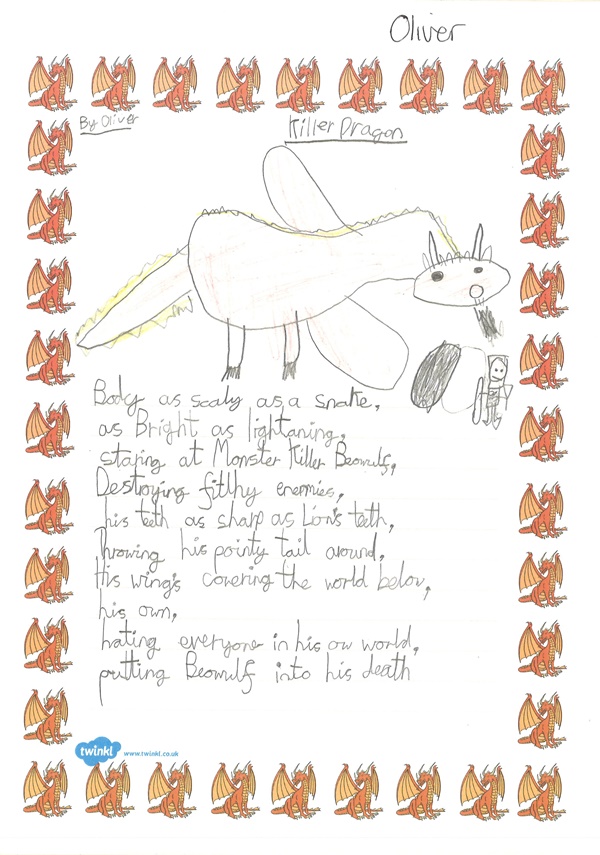 Oliver
By Oliver
Killer Dragon
Body as scaly as a snake,
as Bright as lightaning,
staring at Monster Killer Beowulf,
Destroying filthy enemies,
his teeth as sharp as Lion's teeth,
Throwing his pointy tail around,
His wing's covering the world below,
his own,
hating everyone in his ow world,
putting Beowulf into his death
twinkl www.twinkl.co.uk